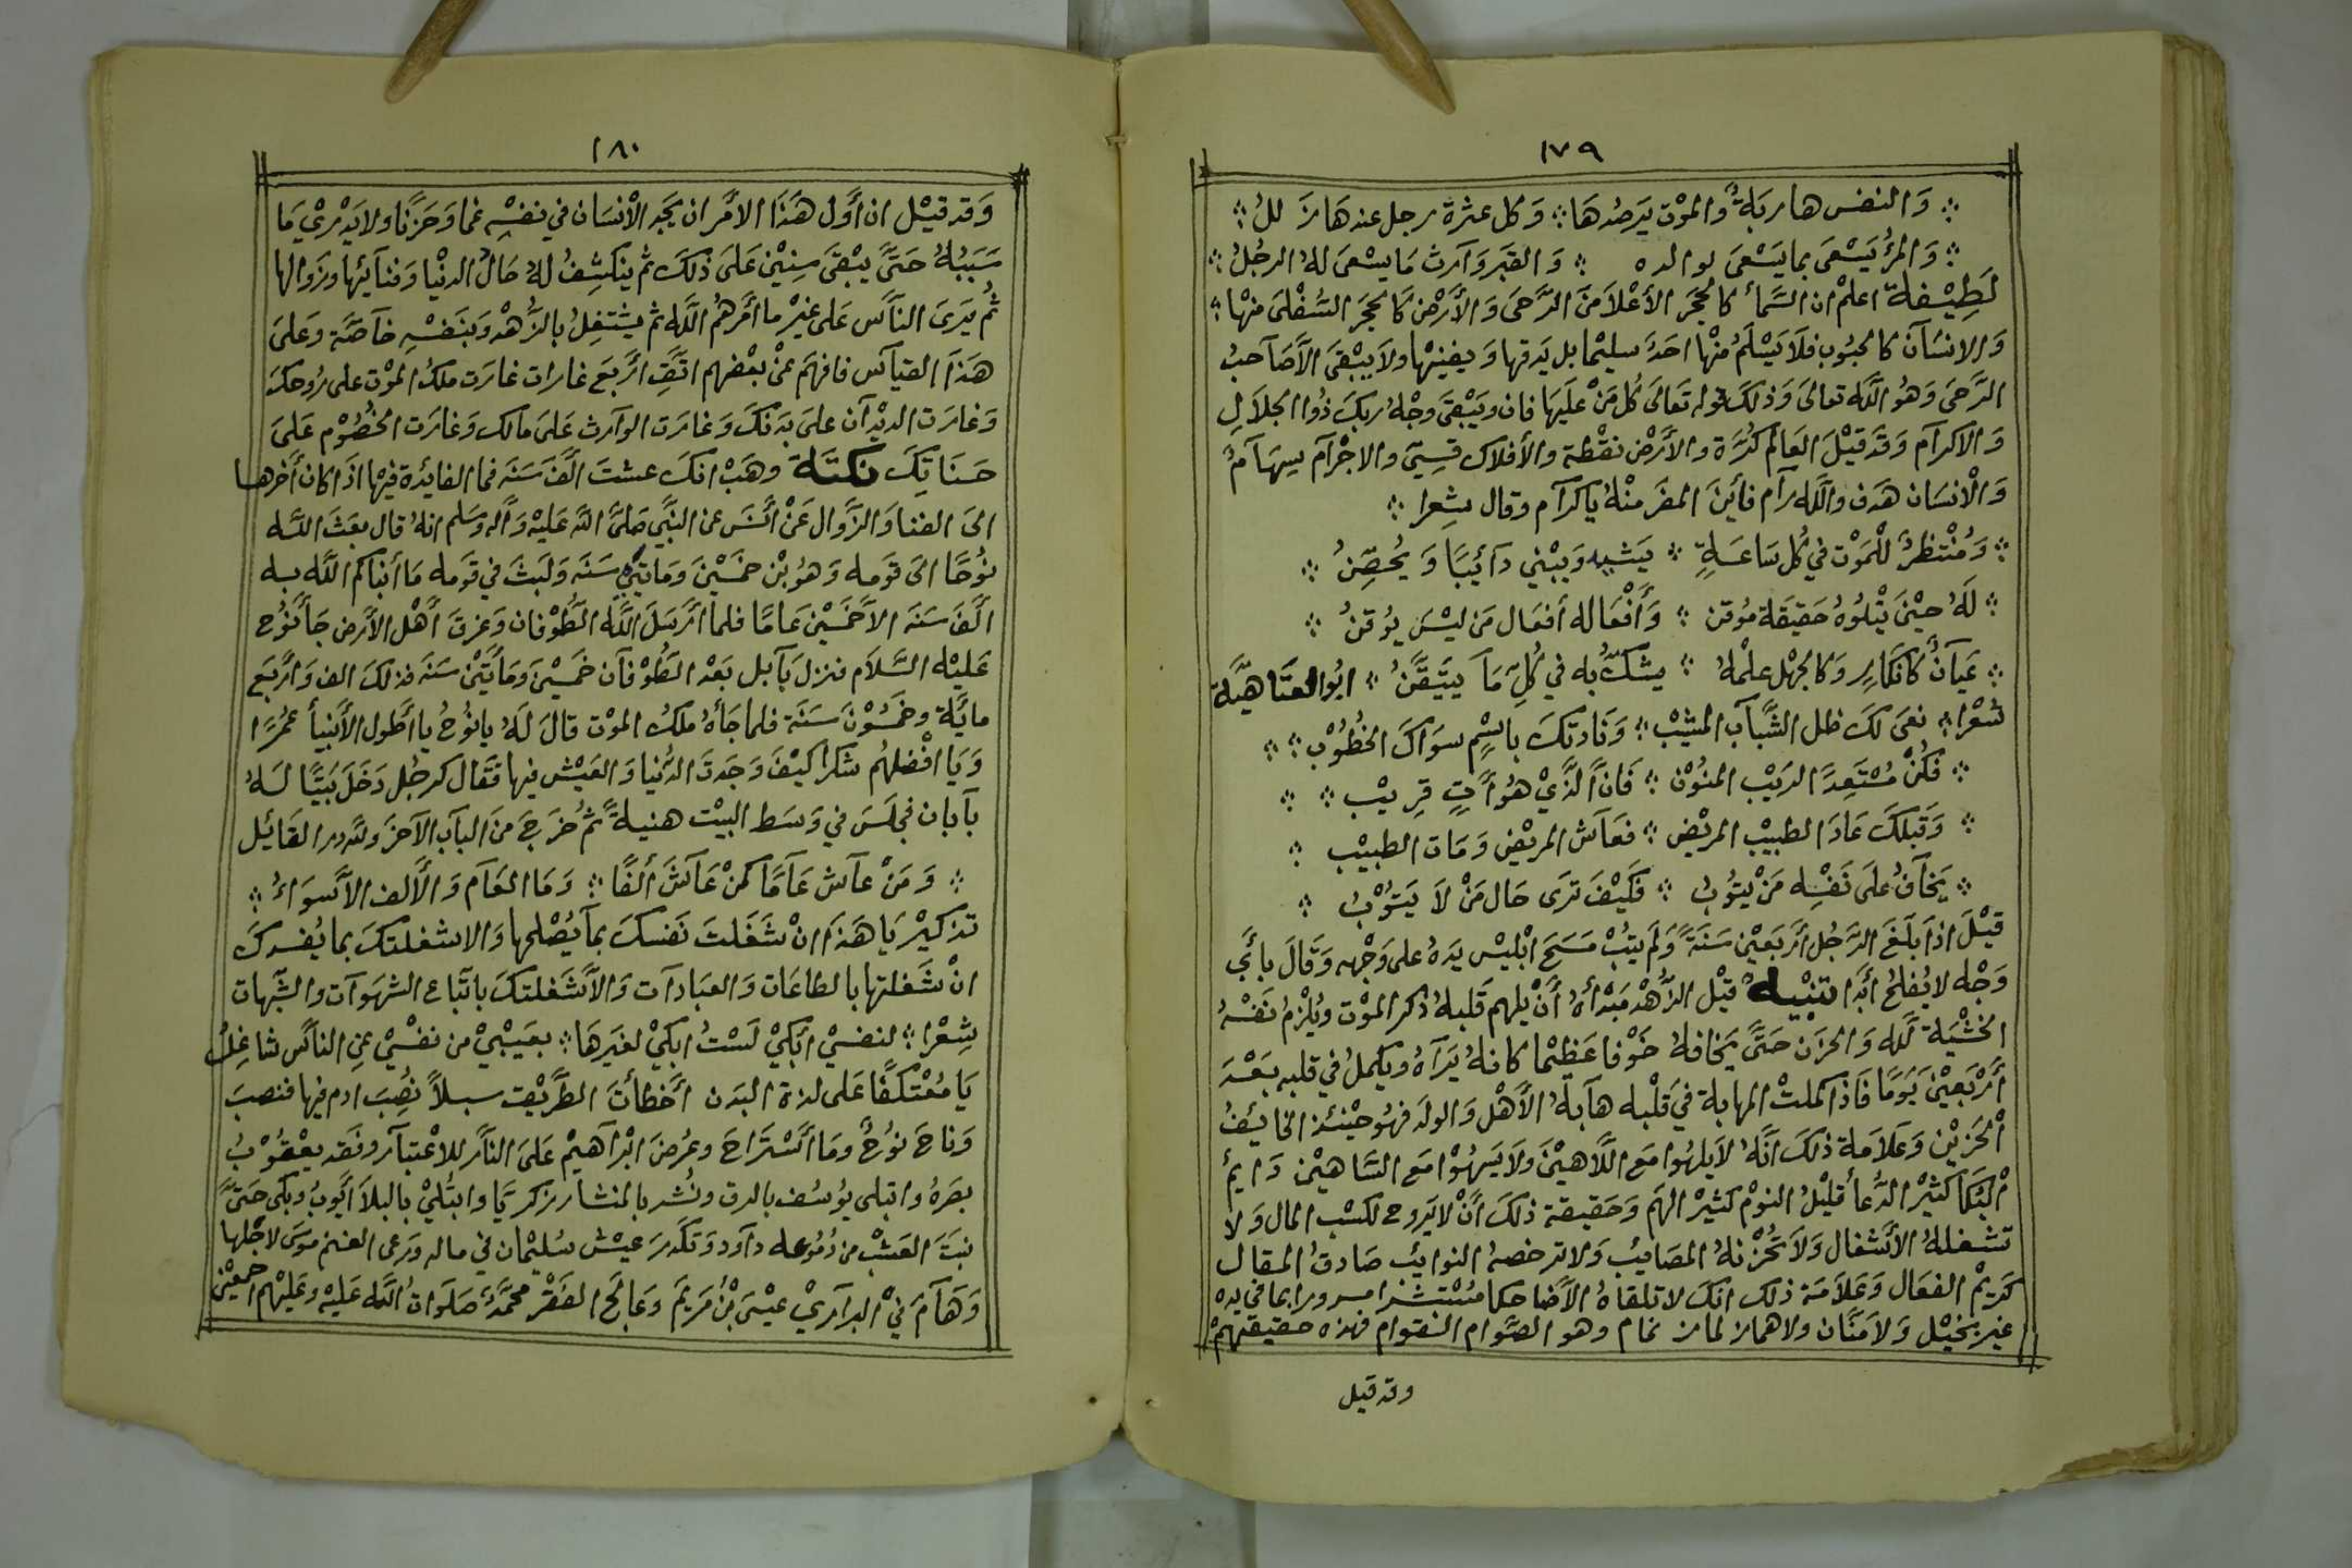 ١٧٩
⁘ وَالنفس هاربَةٌ وَالموْت يَرصُدهَا ⁘ وَكل عثرة رجل عندهَا زَللُ ⁘
⁘ وَالمرْؤ يَسْعىَ بما يَسْعىَ لوالده ⁘ وَالقبَر وَآرث مَا يسْعىَ لهُ الرجُلُ ⁘
لَطِيْفة اعلمْ ان السَّمأ كالحجَر الأعْلاَ منَ الرَّحىَ وَالأَرْضَ كالحجَر السُفْلىَ منهْا ⁘
وَالانسَآن كالحبُوب فلاَ يَسْلَمُ منْها احَدَ سليْما بل يَدقها وَيفنيْها ولاَ يبْقىَ الاَّصَآحبُ
الرَّحىَ وَهُو اللَّه تعالىَ وَذلكَ قوله تَعَالىَ كُل مَنْ عليَها فان ويَبْقىَ وَجْهُ ربكَ ذُوا الجلاَلِ
وَالاكرَآم وَقَد قيْلَ العَالم كُرَة والأَرْض نقْطة والأفلاك قسِيّ والاجْرآم سِهَآم
وَالْانسَان هَدف واللَّه رآم فأينَ المفرَ منْهُ ياكرآم وقال شِعرا ⁘
⁘ وَمُنْتظرٌ للْمَوْت في كُل سَاعَةٍ ⁘ يَشيِد وَيبْني دآئِبًا وَيُحصِّنُ ⁘
⁘ لَهُ حيْنَ يتْلوُهُ حَقيَقة مُوْقن ⁘ وَأَفْعَاله أفعَال مَن ليْسَ يوُقنُ ⁘
⁘ عَيَآنٌ كانكارِ وَكالجهْل علْمهُ ⁘ يشكّ به في كُلِّ مَا يتيَقَّنُ ⁘ ابُوالعتاهيَّة
شعْرا ⁘ نعىَ لكَ ظل الشَّبآب المشيْب ⁘ وَنَادتكَ باسْمٍ سوَاكَ الخطُوْب ⁘ ⁘
⁘ فكُنْ مُسْتَعِدَّا الريَبْ المنُوْن ⁘ فَانَّ الَّذيْ هُو أَتٍ قرِيْب ⁘ ⁘
⁘ وَقبلكَ عَادَ الطبيْب المريْض ⁘ فعَآش المريْض وَمَات الطبيْب ⁘
⁘ يَخآفُ علىَ نفْسِه مَنْ يتوُبُ ⁘ فكَيْفَ ترَى حَال مَنْ لاَ يَتوُْبُ ⁘
قيْلَ اذاَ بلَغَ الرَّجُل أرْبَعيْن سَنَةً وَلَم يتُبْ مَسَحَ ابْليْس يَدهُ على وَجْهه وَقَالَ بأبَي
وَجْه لا يُفلحُ أبَدَا تنْبيهٌ قيْل الزُّهْد مَبْدأهُ أَنْ يلهم قَلبهُ ذكر الموْت ويُلْزمُ نفَسْهُ
الخشْيَة للَّه وَالحزن حَتىَّ يخافهُ خَوْفا عَظيْما كانهُ يَرَآهُ ويكملُ في قلبه بعَدَ
أرْبَعيْنَ يَوْمًا فَاذ اكملتْ المهابة في قلْبه هآبهُ الأهْل وَالولَد فهوُ حيْنئذ الخائفُ
الْحزَيْن وَعَلاَمة ذلكَ انَّهُ لاَ يلهُوا مَع اللَّاهيْنَ ولاَ يَسهُوْا مَع السَّاهيْن دَايمُ
الْبُكأ كثيْر الدُّعأ قليْلُ النوْم كثيْر الهَم وَحَقيقة ذلكَ أَنْ لا يرَوح لكسْب المال وَلا
تشغلهُ الأَشْغال وَلاَ تحْزنهُ المصَايبُ وَلا ترخصهُ النوائبُ صَادقُ المقال
كَريْم الفعَال وَعَلاَمة ذلك انكَ لا تلقاهُ الاَّ ضاحكا مُسْتبشرا مسرورا بما في يده
غير بخيْل وَلاَ مَنَّان ولا هماز لماز نمام وهو الصَّوام النقوام فهذه حقيقتهمْ
وقد قيل
١٨٠
وَقد قيْل ان أَوَل هَذا الاَمر ان يجَد الْأنسَان في نفسْه غما وَحَزنًا ولا يَدْريْ مَا
سَبَبُهُ حَتىَّ يبْقىَ سِنيْنَ عَلىَ ذَلكَ ثم ينكشِفُ لهُ حَالُ الدنْيا وَفنآئها وزَوالها
ثُم يَرىَ النآَس عَلى غيْر ما أَمَرهُم اللَّه ثم يشتغِلُ بالزُّهْد وَبنَفسْه خآصَّة وَعَلىَ
هَذَا القيآس فافهَم عنْ بعْضهم اتَّقِ أرْبَع غارات غارَت ملكُ الموْت على رُوحكَ
وَغارَت الديْدآن علىَ بَدنكَ وَغارَت الوآرث عَلىَ مالك وَغارَت الخُصُوْم عَلىَ
حَسَنَاتِكَ نكتَة وهَبْ انكَ عشتَ الَفَ سَنَه فما الفائدة فيْها اذَا كان أَخرهَا
الىَ الفنا وَالزَّوال عَنْ أنسَ عن النبَّي صَلىَّ اللَّه عَليْه وَآله وَسَلم انهُ قال بعَثَ اللَّه
نوُحًا الىَ قوَمه وَهوُ بْن خمَسْينَ وَمَاتيَنِ سَنَه وَلَبثَ في قوَمه مَا أنبأكم اللَّه به
الَفَ سَنَه الاَّ خمَسْينَ عَامًا فلما أرْسَلَ اللَّه الطُّوْفان وَغرقَ أهْل الاَرض جَأَ نوُح
عَليْه السَّلاَم فنزل بآبل بَعْد الطُوْفآن خمَسْينَ وَمَأتيَنْ سَنَه فذلكَ الف وَأرْبَع
مائَة وخمَسُوْنَ سَنَة فلما جَأهُ ملكُ الموْت قالَ لَهُ يانوُحُ يا أطول الأَنبيأ عُمُرًا
وَيَا أفْضلهُم شكرا كيَْفَ وَجَدتَ الدُّنيا وَالعَيْش فيها فَقَال كرجُل دَخَلَ بَيتًا لَهُ
بآبان فجلَسَ في وَسَط البيْت هنيةً ثمُ خرَجَ منَ البآب الآخرَ وللَّه در القَائل
⁘ وَمَنْ عآش عَامًا كمنْ عَآشَ ألفًا ⁘ وَمَا العَآم وَالأَلف الاَّ سَوَاءُ ⁘
تذكيْر يَا هَذَا انْ شَغَلتَ نَفسكَ بمآ يُصْلحها وَالا شغلتكَ بما يُفسدكَ
انْ شَغلتها بالطاعَات وَالعبَادآت وَالاَّ شَغلتكَ باتبَّاع الشهَوآت والشبَّهات
شِعْرا ⁘ لنفسْي أبْكيْ لَسْتُ ابكيْ لغيَرهَا ⁘ بعيَبْيْ من نفسْيْ عَنِ النآس شاغِلُ
يَا مُعْتكفًا عَلى لذة البَدن أخَطأتَ الطَّريْقتَ سبلاً نُصِبَ ادم فيها فنصبَ
وَناحَ نوُحُ وَمَا أسْترَاحَ وعُرضَ ابْرآهيْم عَلىَ النَآر للاعْتبآر وفقَد يعْقُوْبُ
بصَرهُ وابتلى يوُسُف بالرق ونُشر بالمنشار زكرَيَّا وابتُليْ بالبلاَ أيَّوبُ وبكى حَتىَّ
نبَتَ العَشْب من دُمُوْعه دآود وَتكَدرَ عيْش سُليْمان في ماله وَرعى الغنم موُسَى لاجْلها
وَهَآمَ فيْ البرآريْ عيْسىَ بْنُ مَريَم وَعَالَج الفَقْر محمَّدٌ صَلوَات اللَّه عَليْه وعَليْهم اجمعيْن